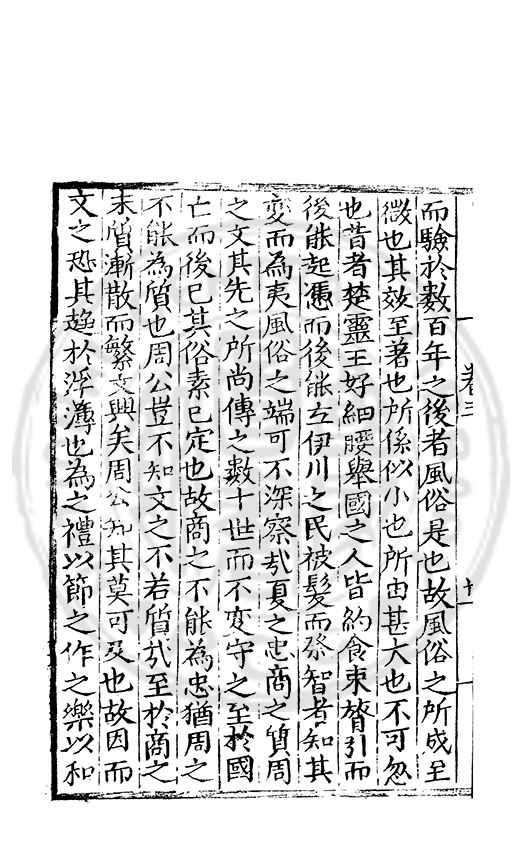 卷三
十一
而驗於數百年之後者風俗是也故風俗之所成至
微也其效至著也所係似小也所由甚大也不可忽
也昔者楚靈王好細腰舉國之人皆約食束脊引而
後能起憑而後能立伊川之民被髮而祭智者知其
變而為夷風俗之端可不深察哉夏之忠商之質周
之文其先之所尚傳之數十世而不变守之至於國
亡而後已其俗素已定也故商之不能為忠猶周之
不能為質也周公豈不知文之不若質哉至於商之
末質漸散而繁文興矣周公知其莫可及也故因而
文之恐其趋於浮薄也為之禮以節之作之樂以和